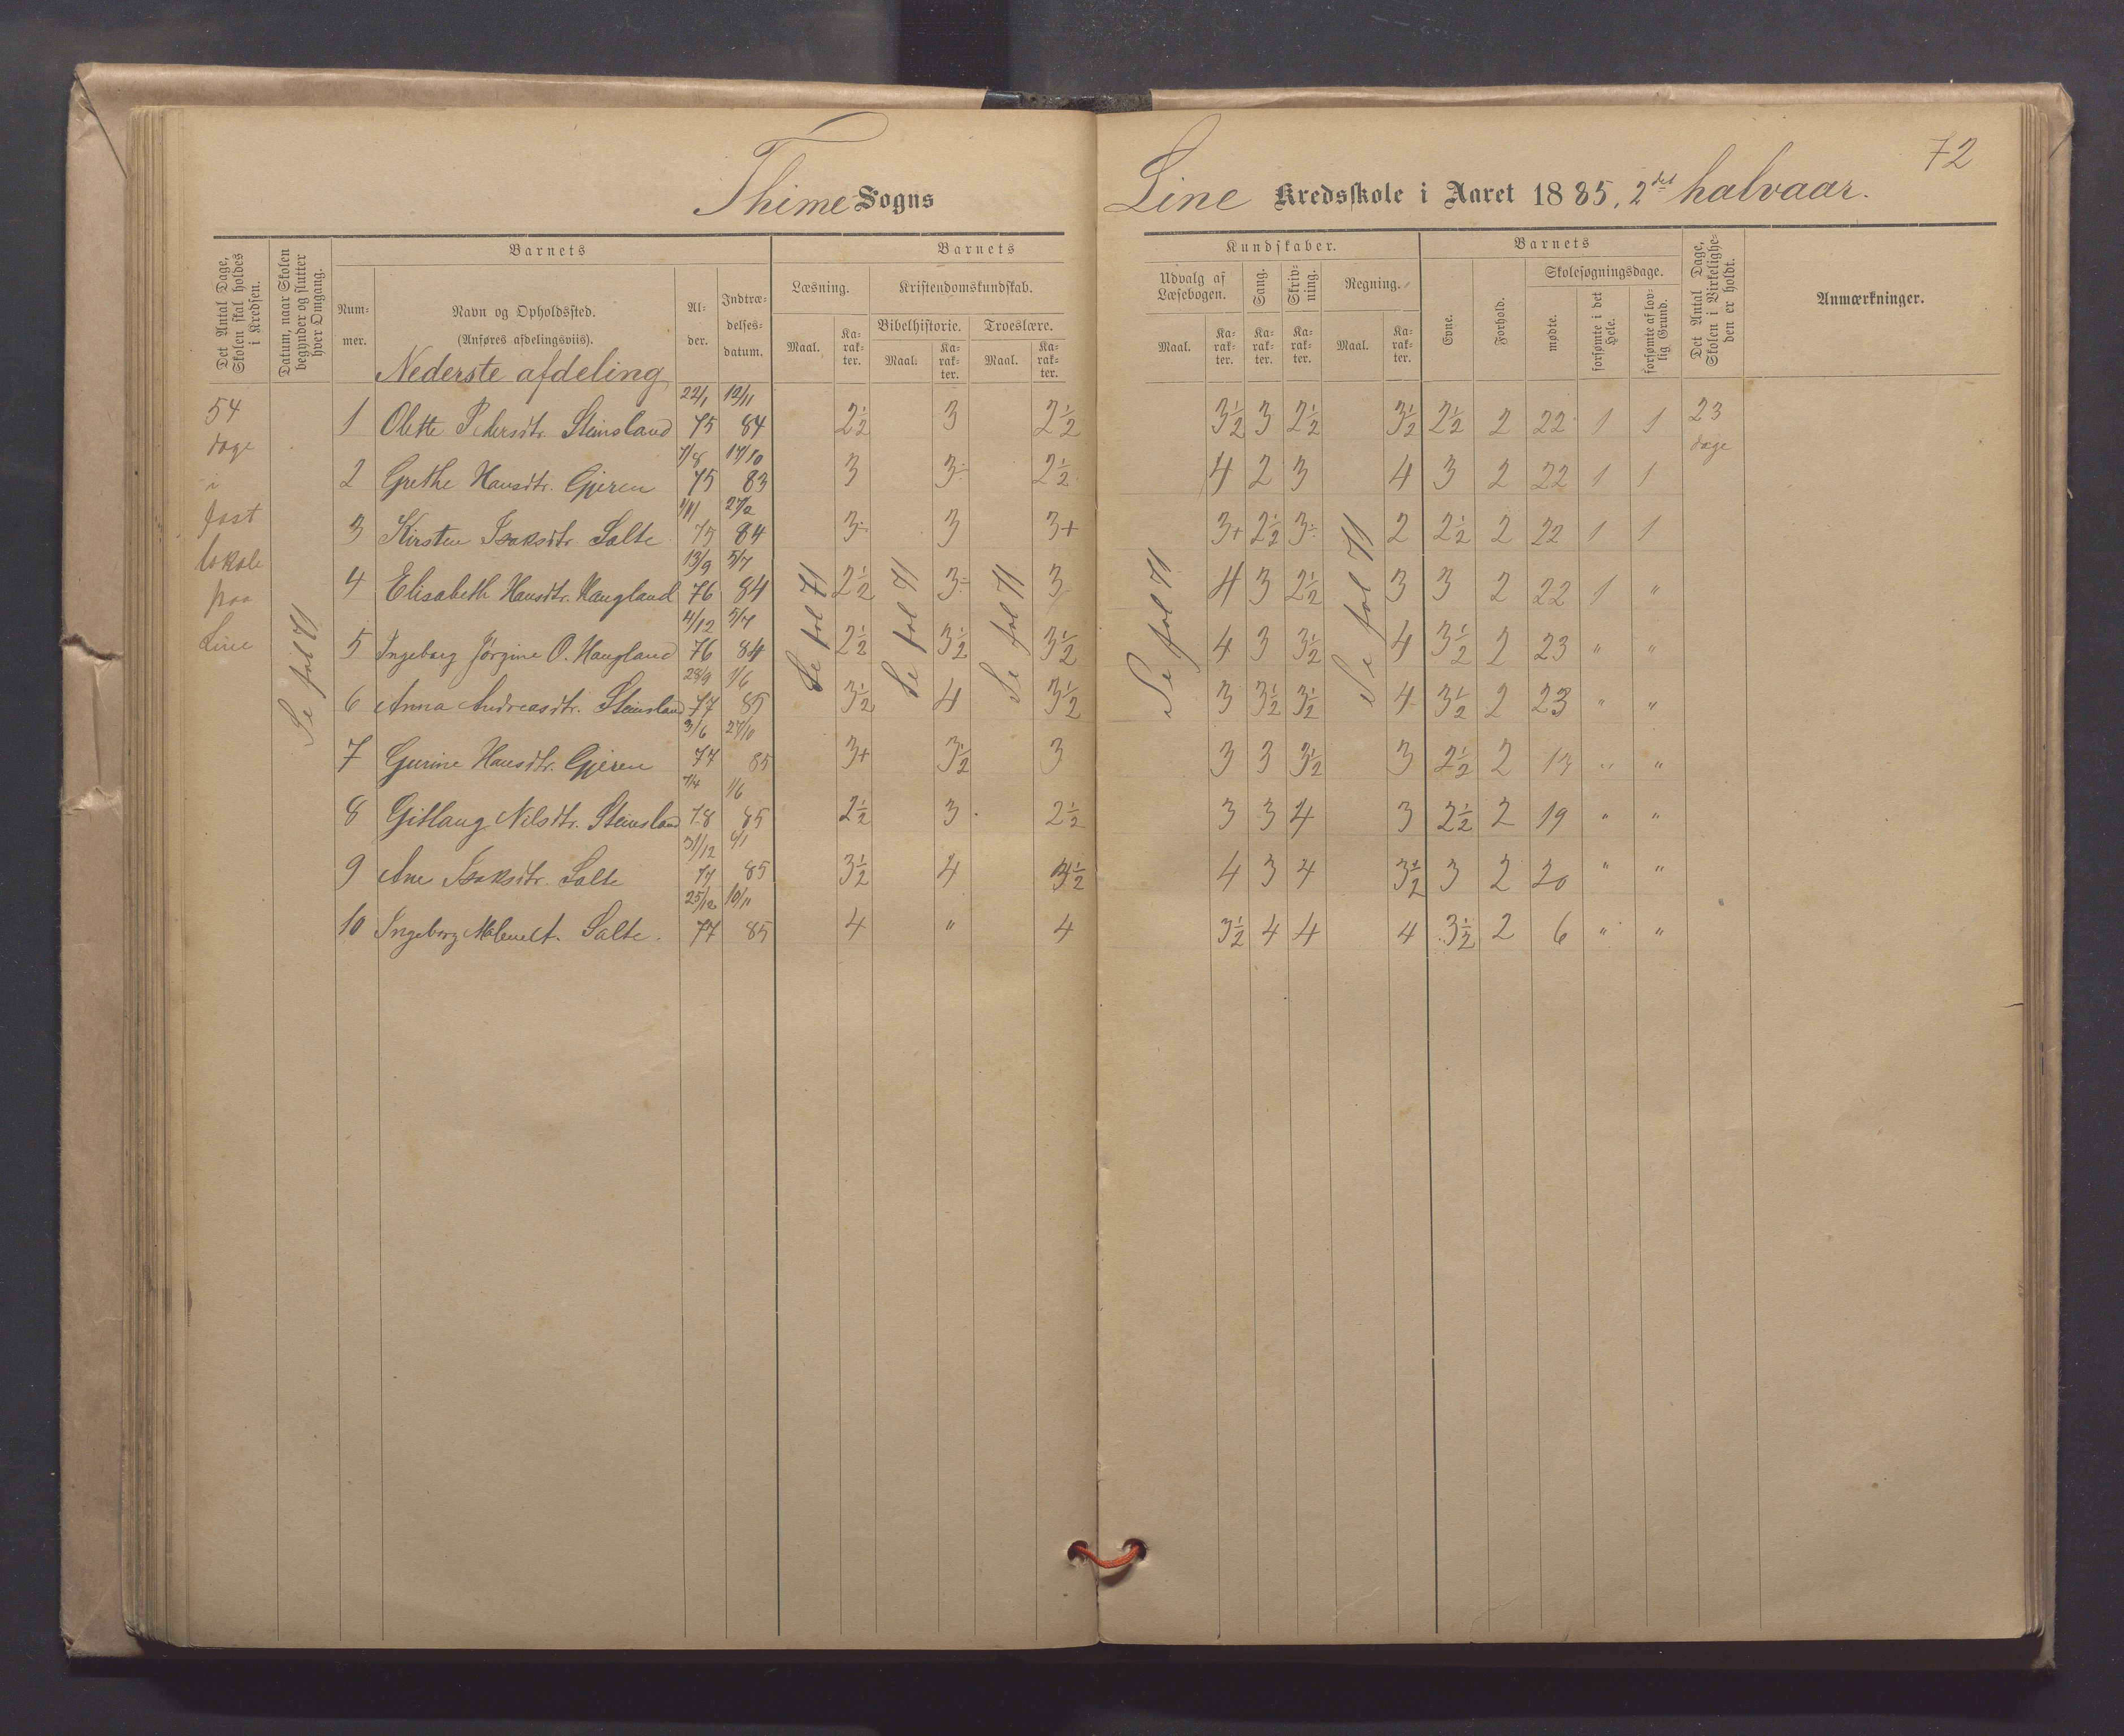 72
Thime Sogns
Line Kredsskole i Aaret 1885, 2det halvaar.
Det Antal Dage, Skolen skal holdes i Kredsen.
Datum, naar Skolen begynder og slutter hver Omgang.
Barnets
Nummer.
Navn og Opholdssted.
(Anføres afdelingsviis).
Alder.
Indtrædelsesdatum.
Barnets
Læsning.
Maal.
Karakter.
Kristendomskundskab.
Bibelhistorie.
Maal.
Karakter.
Troeslære.
Maal.
Karakter.
Kundskaber.
Udvalg af Læsebogen.
Maal.
Karakter.
Sang.
Karakter.
Skrivning.
Karakter.
Regning.
Maal.
Karakter.
Barnets
Evne.
Forhold.
Skolesøgningsdage.
mødte.
forsømte i det Hele.
forsømte af lovlig Grund.
Det Antal Dage, Skolen i Virkeligheden er holdt.
Anmærkninger.
Nederste afdeling
54 dage i fast lokale paa Line
Se fol 71
Se fol 71
Se fol 71
Se fol 71
Se fol 71
Se fol 71
23 dage
1 Olette Pedersdtr. Steinsland 22/1 75 12/11 84 2½ 3 2½ 3½ 3 2½ 3½ 2½ 2 22 1 1
2 Grethe Hansdtr. Gjeren 7/8 75 17/10 83 3 3÷ 2½ 4 2 3 4 3 2 22 1 1
3 Kirsten Isaksdtr. Salte 1/11 75 27/2 84 3÷ 3 3+ 3+ 2½ 3÷ 2 2½ 2 22 1 1
4 Elisabeth Hansdtr. Haugland 13/9 76 5/7 84 2½ 3÷ 3 4 3 2½ 3 3 2 22 1 "
5 Ingeborg Jørgine O. Haugland 4/12 76 5/7 84 2½ 3½ 3½ 4 3 3½ 4 3½ 2 23 " "
6 Anna Andreasdtr. Steinsland 28/9 77 1/6 85 3½ 4 3½ 3 3½ 3½ 4 3½ 2 23 " "
7 Gurine Hansdtr. Gjeren 3/6 77 27/10 85 3+ 3½ 3 3 3 3½ 3 2½ 2 13 " "
8 Gitlaug Nilsdtr. Steinsland 7/4 78 1/6 85 2½ 3 2½ 3 3 4 3 2½ 2 19 " "
9 Ane Isaksdtr. Salte 31/12 77 85 3½ 4 3½ 4 3 4 3½ 3 2 20 " "
10 Ingeborg Salte. 25/12 77 10/11 85 4 " 4 3½ 4 4 4 3½ 2 6 " "